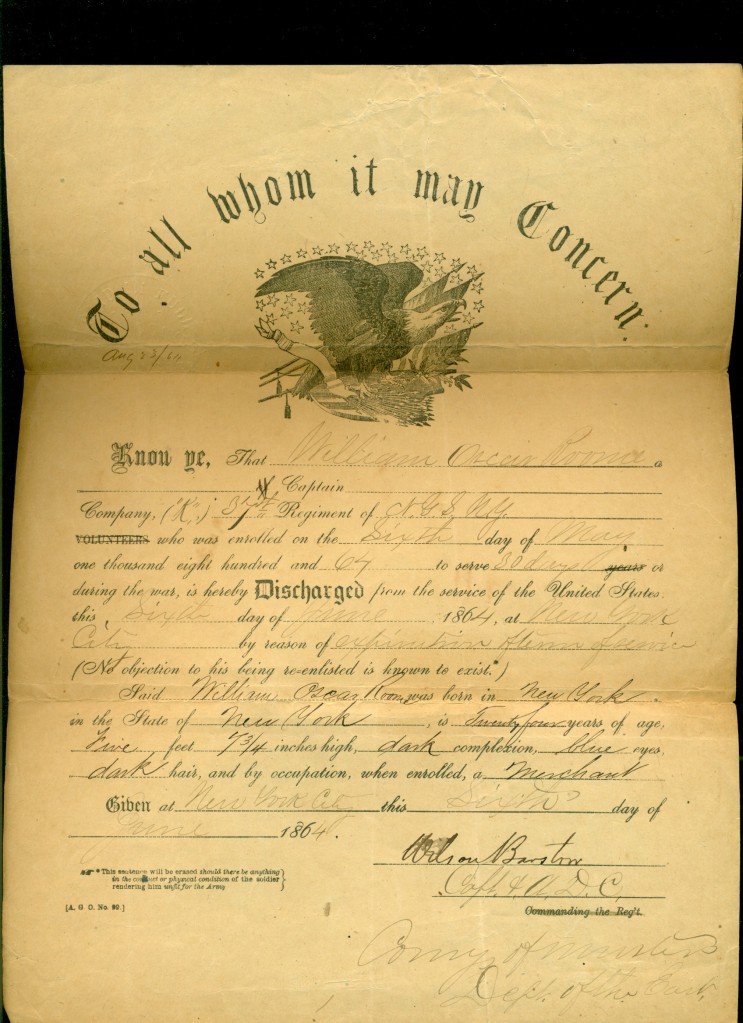 To all whom it may Concern:
Aug 23/64
Know ye, That William Oscar Roome a
Captain
Company, (K,) 37th Regiment of N.G.S. N.Y.
VOLUNTEERS who was enrolled on the Sixth day of May
one thousand eight hundred and 64 to serve 30 days years or
during the war, is hereby Discharged from the service of the United States,
this Sixth day of June 1864, at New York
City by reason of expiration of term of service
(No objection to his being re-enlisted is known to exist.*)
Said William Oscar Roome was born in New York
in the State of New York, is Twenty four years of age,
Five feet 7 3/4 inches high, dark complexion, blue eyes,
dark hair, and by occupation, when enrolled, a Merchant
Given at New York City this Sixth day of
June 1864.
Wilson Barstow
Capt. & A. D. C.
Commanding the Reg't.
*This sentence will be erased should there be anything
in the conduct or physical condition of the soldier
rendering him unfit for the Army
[A. G. O. No. 99.]
Comy. of Musters
Dept. of the East.